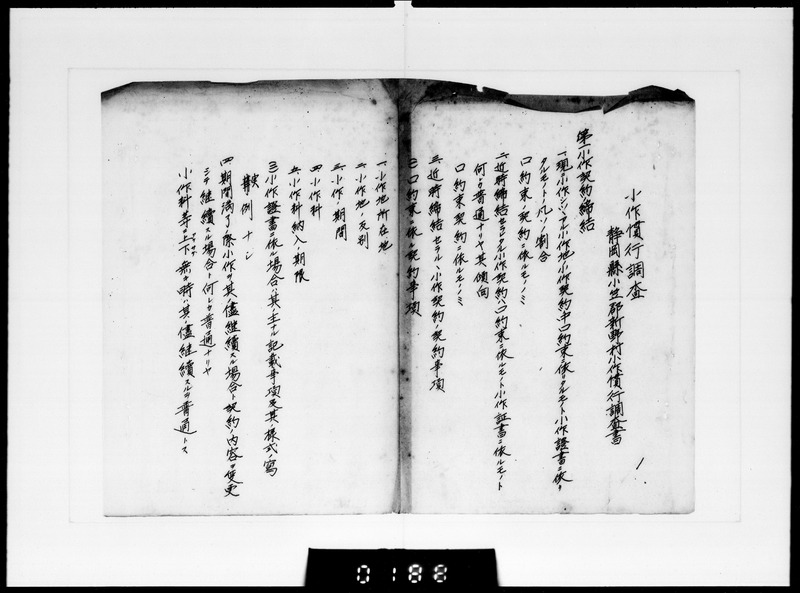 小作慣行調査
靜岡縣小笠郡新野村小作慣行調査書
第一小作契約ノ締結
一、現小作シツヽアル小作地小作契約中口約束ニ依リタルモノト小作證書ニ依リ
タルモノトノ凡ソノ割合
口約束ノ契約ニ依ルモノノミ
二、近時締結セラレタル小作契約ハ口約束ニ依ルモノト小作証書ニ依ルモノト
何レカ普通ナリヤ其傾向
口約束ノ契約ニ依ルモノノミ
三、近時締結セラルヽ小作契約ノ契約事項
㈡口約束ニ依ル契約事項
一、小作地所在地
二、小作地ノ反別
三、小作ノ期間
四、小作料
五、小作料納入ノ期限
㈢小作證書ニ依ル場合ハ其ノ主ナル記載事項及其ノ樣式ノ寫
事例ナシ
四、期間滿了ノ際小作ヲ其儘継續スル場合ト契約ノ内容ヲ変更
シテ継續スル場合ト何レカ普通ナリヤ
小作料等ノ上下無キ時ハ其ノ儘継續スルヲ普通トス
0188